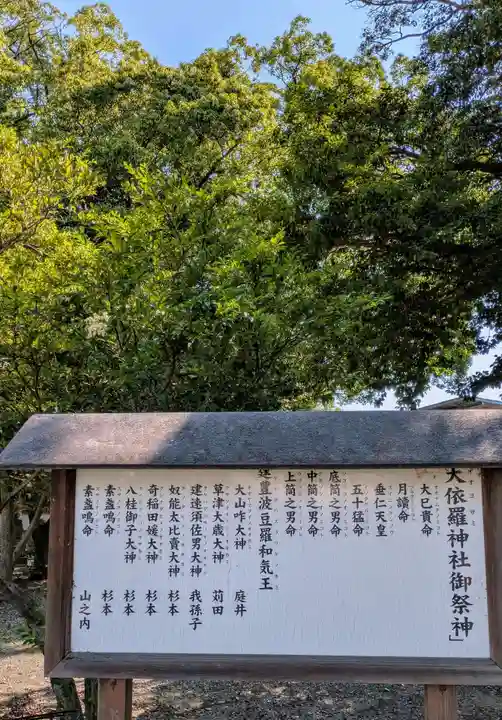 大依羅神社御祭神」
大己貴命
月讀命
垂仁天皇
五十猛命
底筒之男命
中筒之男命
上筒之男命
建豊波豆羅和気王
大山咋大神 庭井
草津大歳大神 苅田
建速須佐男大神 我孫子
奴能太比賣大神 杉本
奇稲田媛大神 杉本
八桂御子大神 杉本
素盞嗚命 杉本
素盞嗚命 山之内